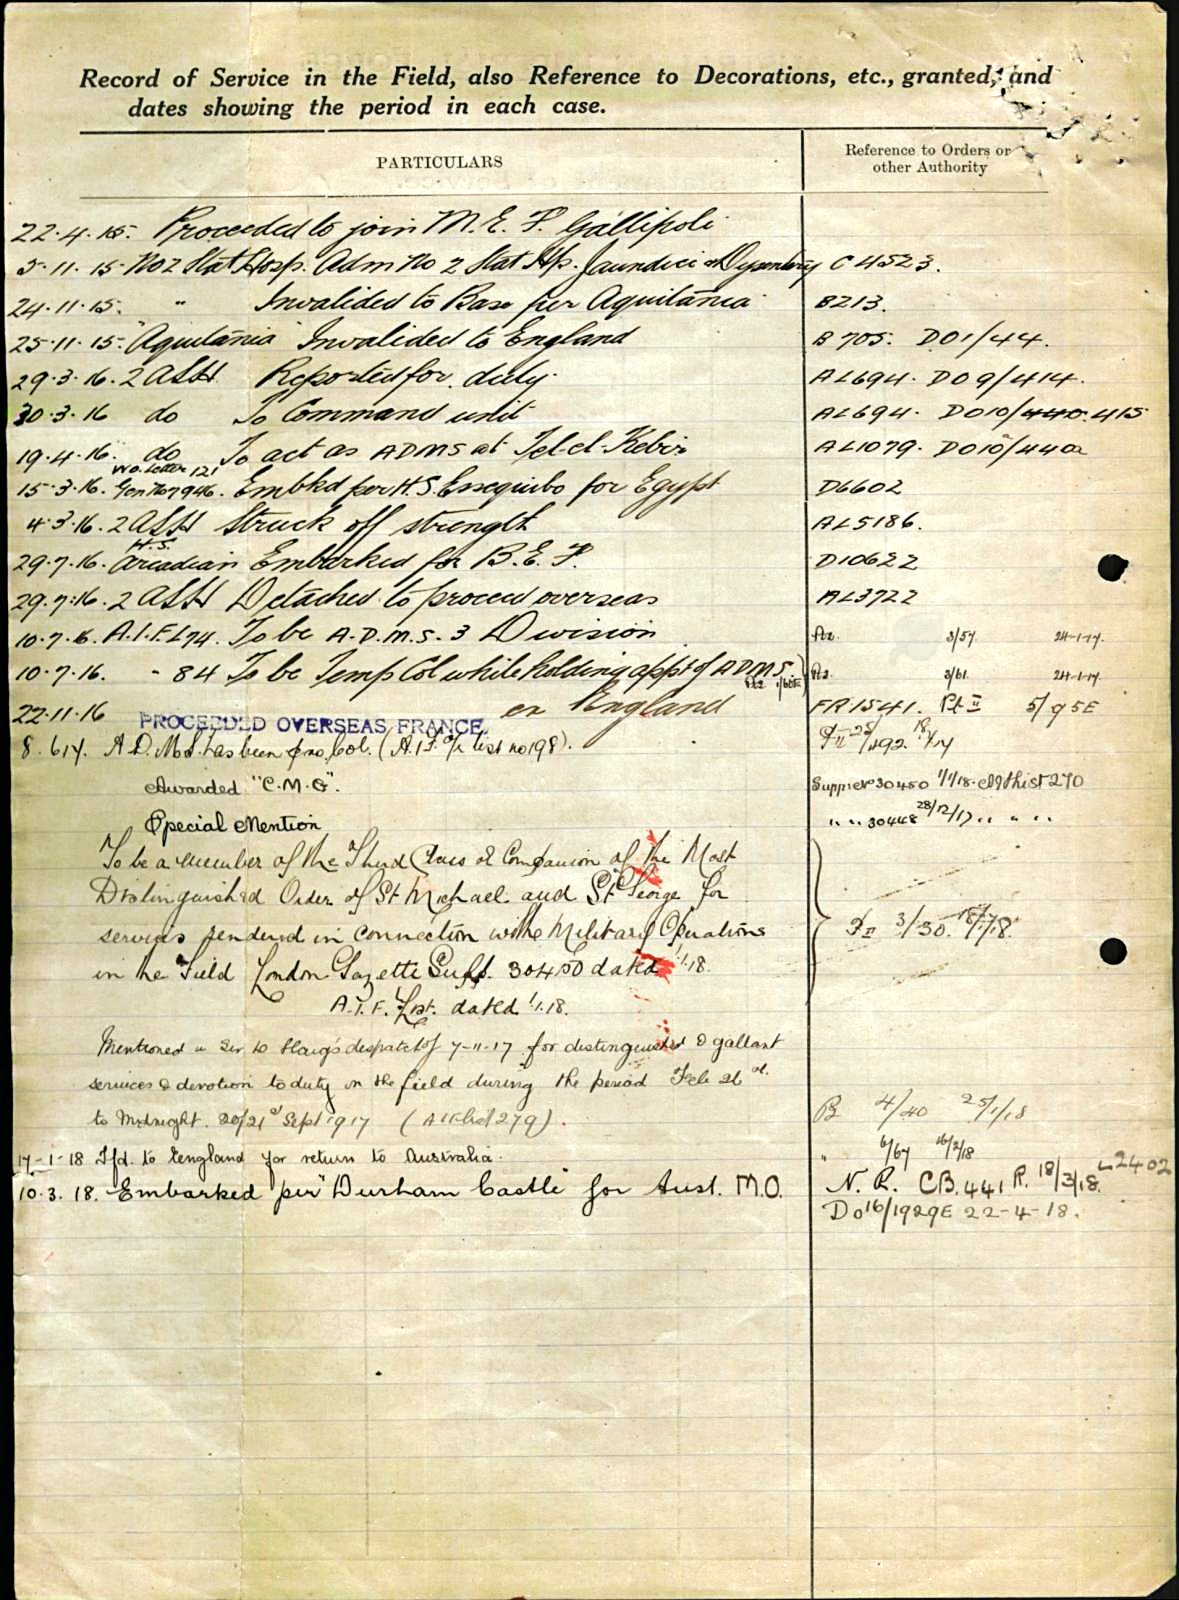 Record of Service in the Field, also Reference to Decorations, etc., granted, and
dates showing the period in each case.
PARTICULARS
Reference to Orders or
other Authority
22.4.15. Proceeded to join M.E.F. Gallipoli
5.11.15 No 2 Stat Hosp. Adm No 2 Stat Hp. Jaundice & Dysentery C 4523.
24.11.15. " Invalided to Base per Aquitania B213.
25.11.15. "Aquitania" Invalided to England B 705. DO1/44.
29.3.16. 2 ASH Reported for duty. AL694. DO9/414.
30.3.16 do To Command unit AL694. DO10/440. 415
19.4.16. do To act as ADMS at Tel-el-Kebir AL1079. DO10/440a
WO. Letter 121
15.3.16. Gen No 7946. Embkd per H.S. Essequibo for Egypt D6602
4.3.16. 2 ASH Struck off strength AL5186.
H.S.
29.7.16. Arcadian Embarked for B.E.F. D10622
29.7.16. 2 ASH Detached to proceed overseas AL3722
10.7.16. A.I.F. L74. To be A.D.M.S. 3 Division 3/57. 24-1-17.
10.7.16. " 84 To be Temp Col while holding appt of ADMS 3/61. 24-1-17.
22.11.16 PROCEEDED OVERSEAS, FRANCE. ex England FR1541. Pt II 5/95E
8.6.17. A.D.M.S. has been pro. Col. (A.I.F. list no 198).
Awarded "C.M.G". Supp No 30450 1/1/18. list 270
Special Mention " " 30448 28/12/17 " " "
To be a member of the Third Class or Companion of the Most
Distinguished Order of St Michael and St George for
services rendered in connection with the Military Operations P II 3/30. 18/7/18.
in the Field London Gazette Supp. 30450 dated 1.1.18.
A.I.F. List. dated 1/1.18.
Mentioned in Sir D Haig's despatch of 7-11-17 for distinguished & gallant
services & devotion to duty in the field during the period Feb 26th
to Midnight. 20/21st Sept 1917 (AIF list 279). B 4/40 25/1/18
17-1-18 Tfd. to England for return to Australia. " 6/67 16/2/18
10.3.18. Embarked per "Durham Castle" for Aust. M.O. N.R. CB.441 R. 18/3/18. L2402
Do 16/1929E 22-4-18.